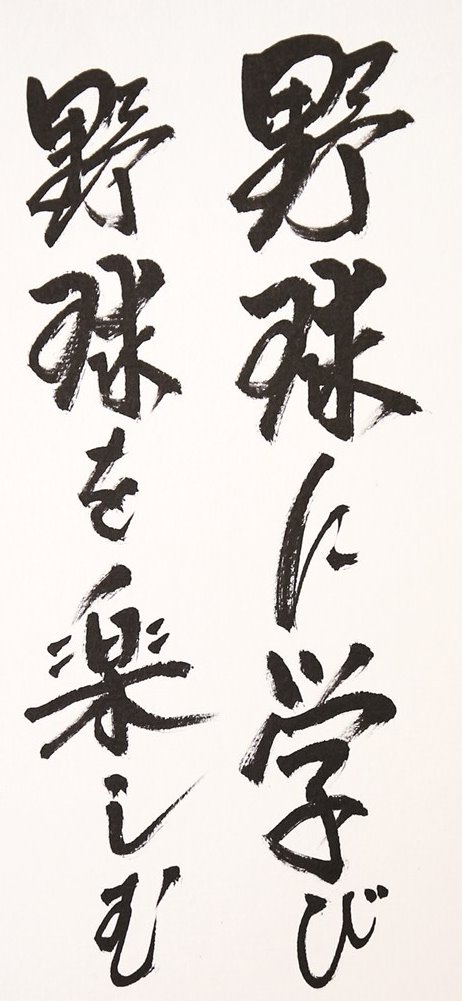 野球に学び
野球を楽しむ